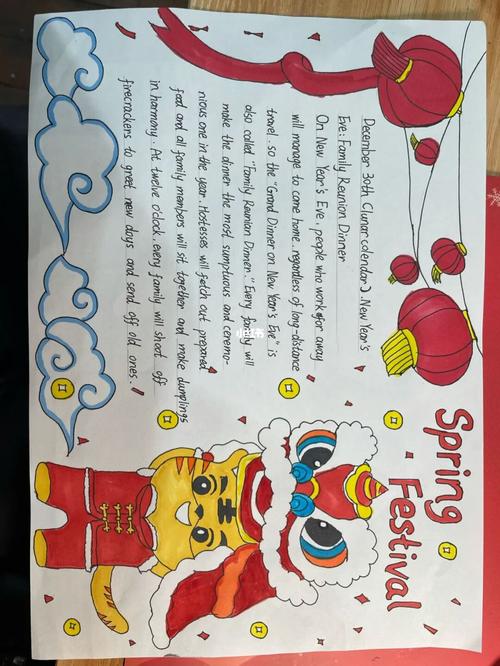 Spring
Festival
December 30th (lunar calendar). New Year's
Eve: Family Reunion Dinner
On New Year's Eve, people who work far away
will manage to come home, regardless of long-distance
travel. so the "Grand Dinner on New Year's Eve" is
also called "Family Reunion Dinner." Every family will
make the dinner the most sumptuous and ceremo-
nious one in the year. Hostesses will fetch out prepared
food and all family members will sit together and make dumplings
in harmony. At twelve o'clock, every family will shoot off
firecrackers to greet new days and send off old ones.
小红书